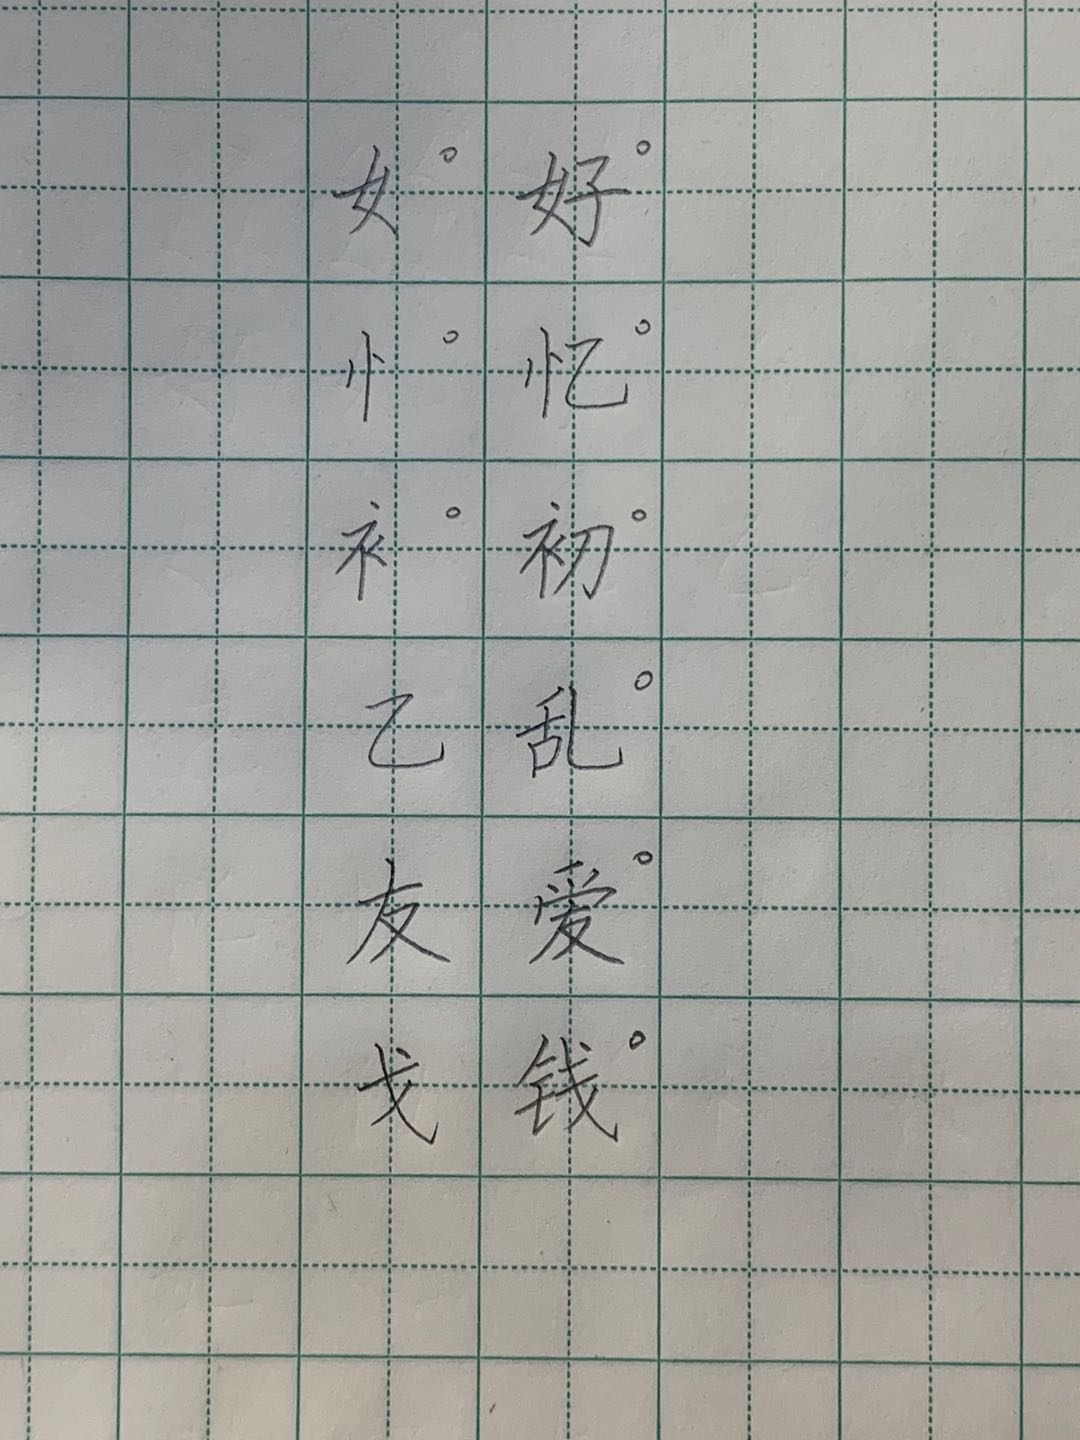 女° 好°
忄° 忆°
衤° 初°
乙 乱°
友 爱°
戈 钱°